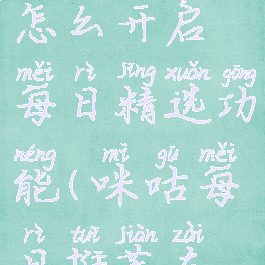 怎么开启
měi rì jīng xuǎn gōng
每日精选功
néng mī gū měi
能(咪咕每
rì tuī jiàn zài
日推荐在